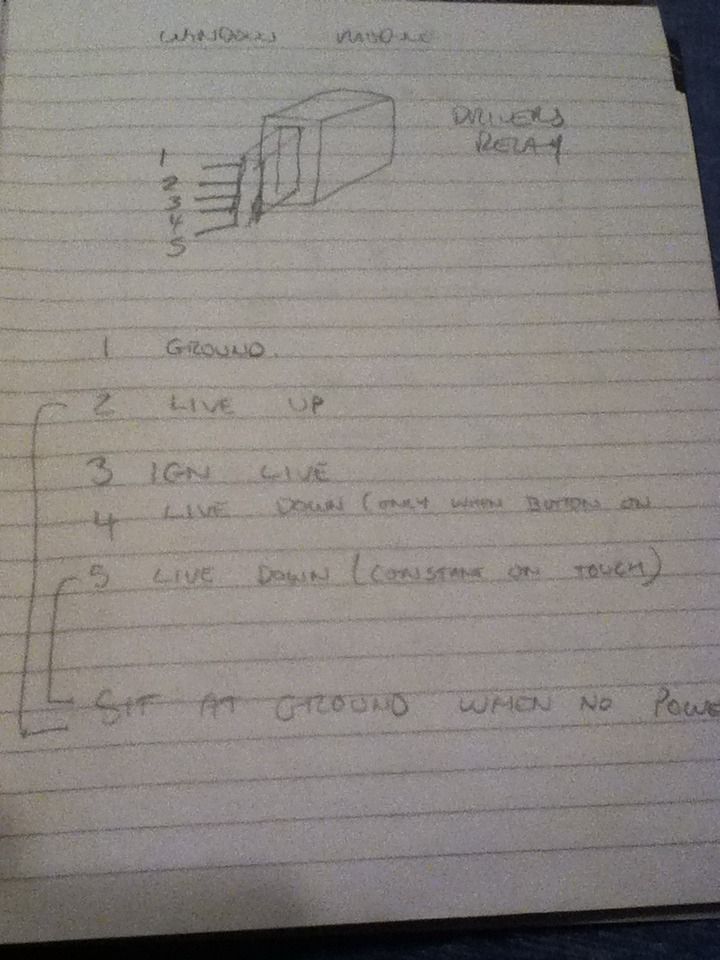 DRIVERS
RELAY
1
2
3
4
5
1 GROUND.
2 LIVE UP
3 IGN LIVE
4 LIVE DOWN (ONLY WHEN BUTTON ON
5 LIVE DOWN (CONSTANT ON TOUCH)
SIT AT GROUND WHEN NO POWE